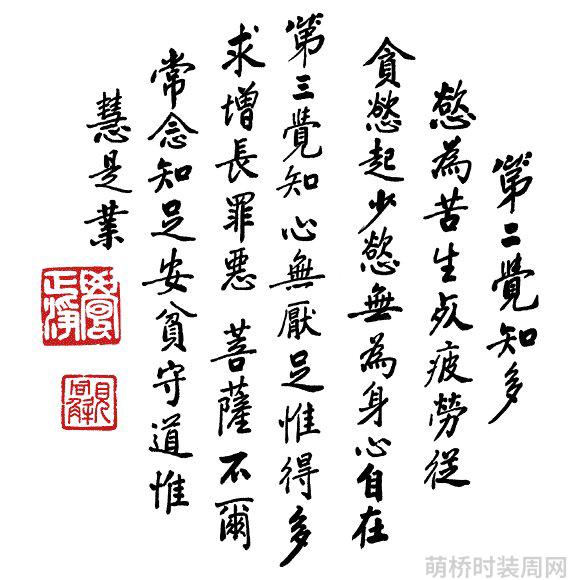 第二覺知多
慾為苦生死疲勞從
貪慾起少慾無為身心自在
第三覺知心無厭足惟得多
求增長罪惡 菩薩不爾
常念知足安貧守道惟
慧是業
萌桥时装周网